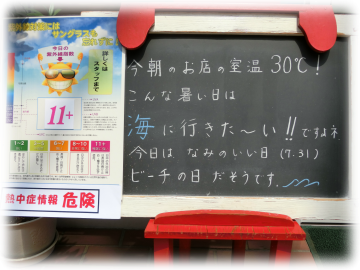 サングラスを忘れずに
今日の
紫外線指数
詳しくは
スタッフまで
11+
1~2
8~10
11+
熱中症情報 危険
今朝のお店の室温 30℃!
こんな暑い日は
海に行きた~い!!ですよネ
今日は なみのいい日 (7.31)
ビーチの日 だそうです。